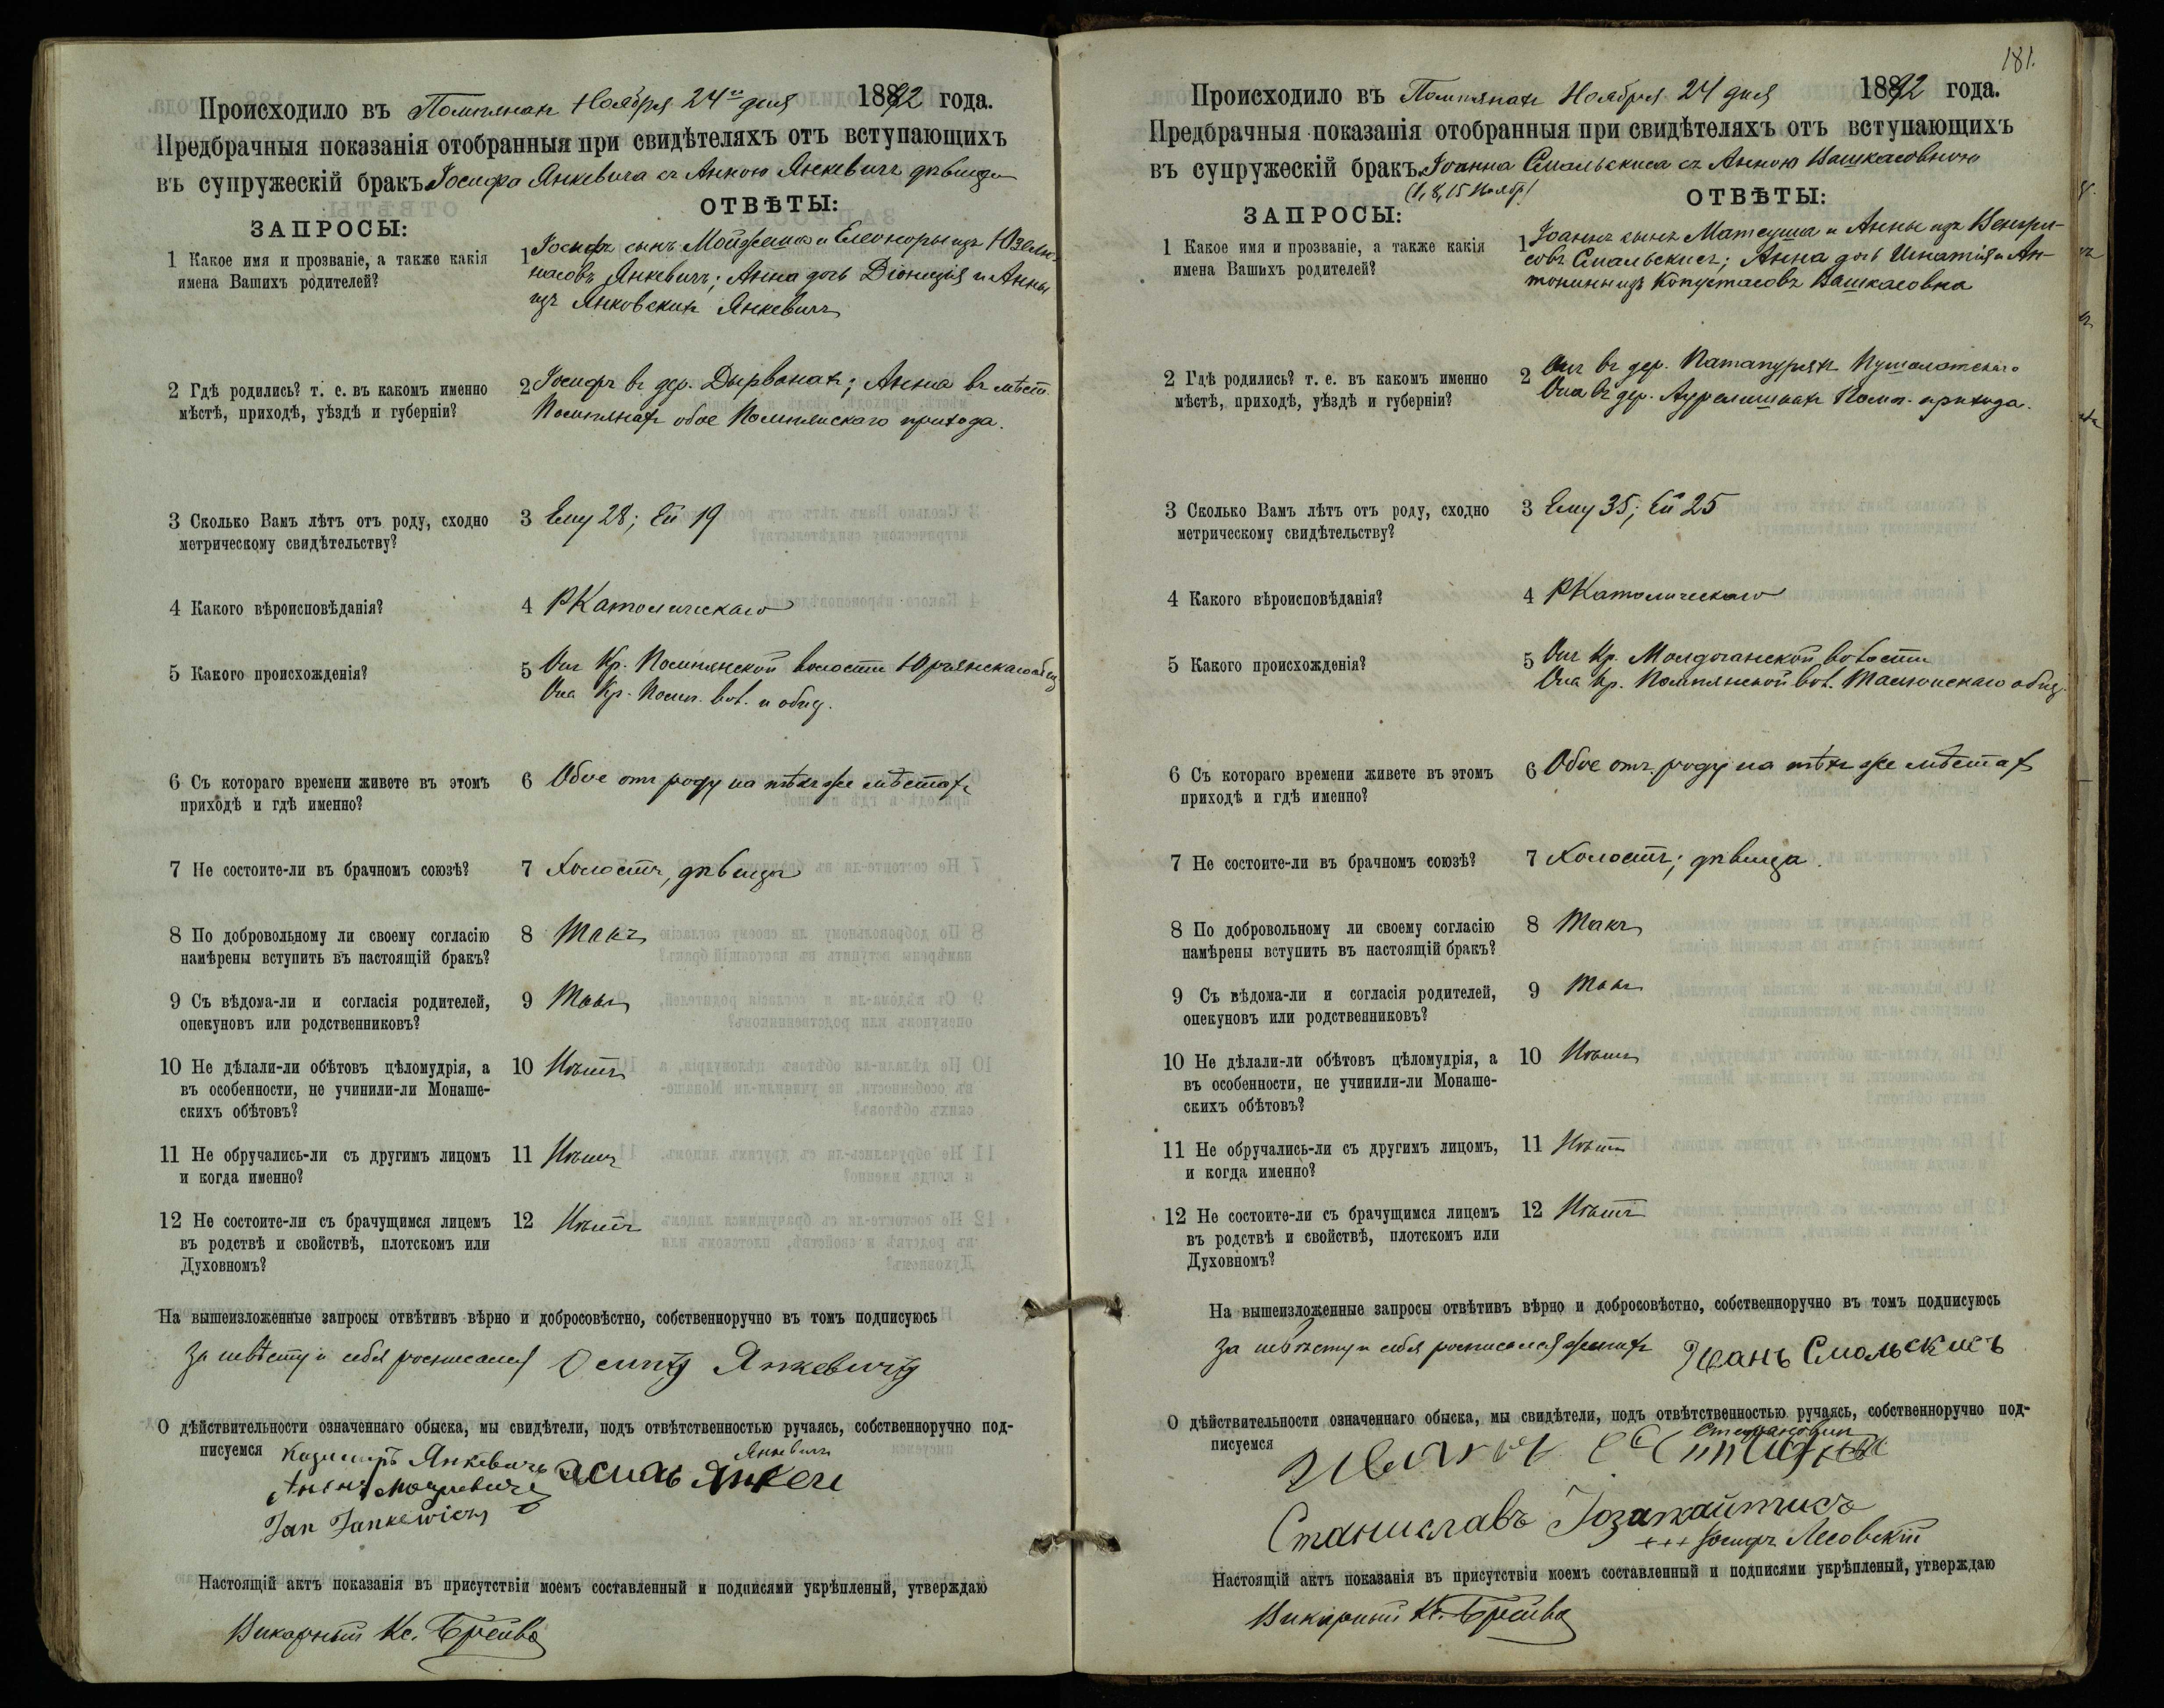 Происходило въ Помпянахъ Ноября 24го дня 1892 года.
Предбрачныя показанія отобранныя при свидѣтеляхъ отъ вступающихъ
въ супружескій бракъ Іосифа Янкевича съ Анною Янкевичъ дѣвицею
ЗАПРОСЫ:
ОТВѢТЫ:
1 Какое имя и прозваніе, а также какія
имена Вашихъ родителей?
1 Іосифъ сынъ и Елеоноры изъ
Янкевичъ; Анна дочь Діонизія и Анны
изъ Янковскихъ Янкевичъ
2 Гдѣ родились? т. е. въ какомъ именно
мѣстѣ, приходѣ, уѣздѣ и губерніи?
2 Іосифъ въ дер. Дырванахъ; Анна въ мѣст.
Помпянахъ обое Помпянскаго прихода.
3 Сколько Вамъ лѣтъ отъ роду, сходно
метрическому свидѣтельству?
3 Ему 28; Ей 19
4 Какого вѣроисповѣданія?
4 РКатолическаго
5 Какого происхожденія?
5 Онъ Кр. Помпянской волости
Она Кр. Помп. вол. и общ.
6 Съ котораго времени живете въ этомъ
приходѣ и гдѣ именно?
6 Обое отъ роду на тѣхъ же мѣстахъ
7 Не состоите-ли въ брачномъ союзѣ?
7 Холостъ, дѣвица
8 По добровольному ли своему согласію
намѣрены вступить въ настоящій бракъ?
8 Такъ
9 Съ вѣдома-ли и согласія родителей,
опекуновъ или родственниковъ?
9 Такъ
10 Не дѣлали-ли обѣтовъ цѣломудрія, а
въ особенности, не учинили-ли Монаше-
скихъ обѣтовъ?
10 Нѣтъ
11 Не обручались-ли съ другимъ лицомъ
и когда именно?
11 Нѣтъ
12 Не состоите-ли съ брачущимся лицемъ
въ родствѣ и свойствѣ, плотскомъ или
Духовномъ?
12 Нѣтъ
На вышеизложенные запросы отвѣтивъ вѣрно и добросовѣстно, собственноручно въ томъ подписуюсь
За невѣсту и себя росписался Осипъ Янкевичъ
О дѣйствительности означеннаго обыска, мы свидѣтели, подъ отвѣтственностью ручаясь, собственноручно под-
писуемся Казимиръ Янкевичъ
Янкевичъ
Jan Jankewicz
Настоящій актъ показанія въ присутствіи моемъ составленный и подписями укрѣпленый, утверждаю
Викарный Кс. Брейво
181.
Происходило въ Помпянахъ Ноября 24 дня 1892 года.
Предбрачныя показанія отобранныя при свидѣтеляхъ отъ вступающихъ
въ супружескій бракъ Іоанна Смальскиса съ Анною Вашкасовною
(1, 8, 15 Ноябр)
ЗАПРОСЫ:
ОТВѢТЫ:
1 Какое имя и прозваніе, а также какія
имена Вашихъ родителей?
1 Іоаннъ сынъ Матеуша и Анны изъ Венгри-
совъ Смальскисъ; Анна дочь Игнатія и Ан-
тонины изъ Копустасовъ Вашкасовна
2 Гдѣ родились? т. е. въ какомъ именно
мѣстѣ, приходѣ, уѣздѣ и губерніи?
2 Онъ въ дер. Пушолотскаго
Она въ дер. Помп. прихода.
3 Сколько Вамъ лѣтъ отъ роду, сходно
метрическому свидѣтельству?
3 Ему 35; Ей 25
4 Какого вѣроисповѣданія?
4 РКатолическаго
5 Какого происхожденія?
5 Онъ Кр. волости
Она Кр. Помпянской вол. общ.
6 Съ котораго времени живете въ этомъ
приходѣ и гдѣ именно?
6 Обое отъ роду на тѣхъ же мѣстахъ
7 Не состоите-ли въ брачномъ союзѣ?
7 Холостъ; дѣвица.
8 По добровольному ли своему согласію
намѣрены вступить въ настоящій бракъ?
8 Такъ
9 Съ вѣдома-ли и согласія родителей,
опекуновъ или родственниковъ?
9 Такъ
10 Не дѣлали-ли обѣтовъ цѣломудрія, а
въ особенности, не учинили-ли Монаше-
скихъ обѣтовъ?
10 Нѣтъ
11 Не обручались-ли съ другимъ лицомъ,
и когда именно?
11 Нѣтъ
12 Не состоите-ли съ брачущимся лицемъ
въ родствѣ и свойствѣ, плотскомъ или
Духовномъ?
12 Нѣтъ
На вышеизложенные запросы отвѣтивъ вѣрно и добросовѣстно, собственноручно въ томъ подписуюсь
За невѣсту и себя росписался женихъ Иванъ Смольскисъ
О дѣйствительности означеннаго обыска, мы свидѣтели, подъ отвѣтственностью ручаясь, собственноручно под-
писуемся
Станиславъ
+++ Іосифъ Лесовскій
Настоящій актъ показанія въ присутствіи моемъ составленный и подписями укрѣпленый, утверждаю
Викарный Кс. Брейво